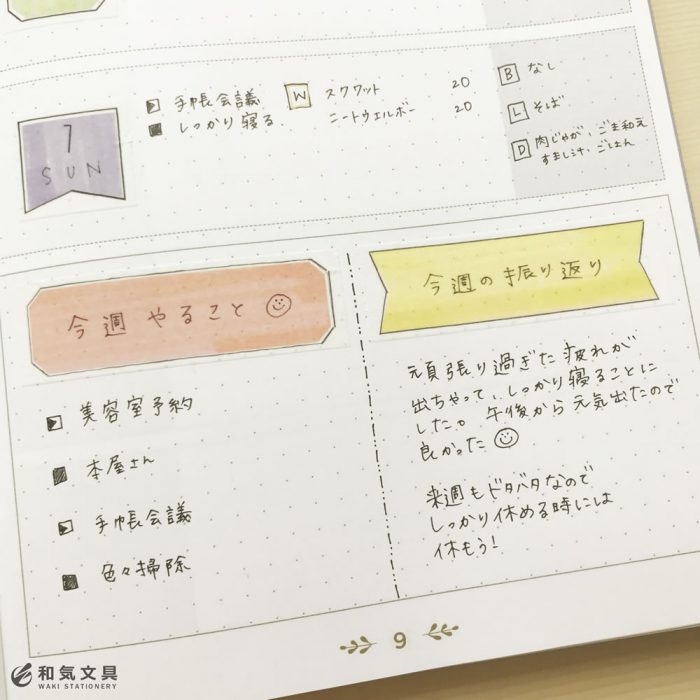 7
SUN
手帳会議
しっかり寝る
W スクワット 20
ニートウェルボー 20
B なし
L そば
D 肉じゃが、ごま和え
すまし汁、ごはん
今週やること
美容室予約
本屋さん
手帳会議
色々掃除
今週の振り返り
頑張り過ぎた疲れが
出ちゃって、しっかり寝ることに
した。午後から元気出たので
良かった
来週もドタバタなので
しっかり休める時には
休もう!
9
和気文具
WAKI STATIONERY